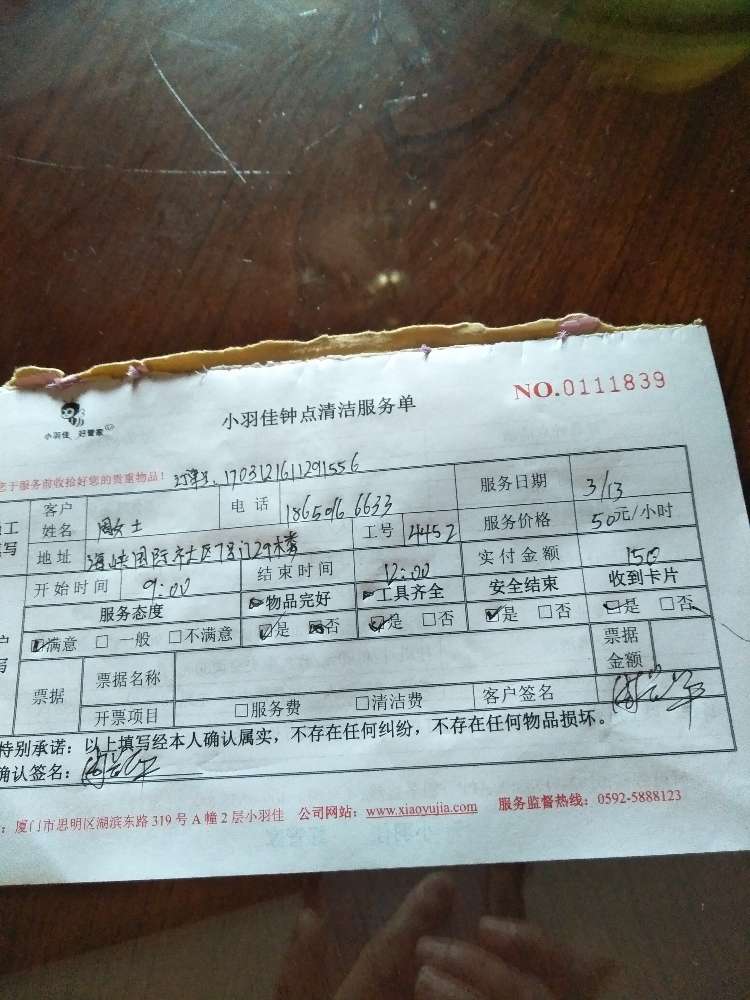 小羽佳钟点清洁服务单
NO.0111839
小羽佳 好管家
您于服务前收拾好您的贵重物品! 订单号: 1703121611291556
客户姓名 周女士 电话 18650166633 服务日期 3/13
地址 海峡国际社区7号门29楼 工号 4452 服务价格 50元/小时
开始时间 9:00 结束时间 12:00 实付金额 150
服务态度 物品完好 工具齐全 安全结束 收到卡片
满意 一般 不满意 是 否 是 否 是 否 是 否
票据 票据名称 票据金额
开票项目 服务费 清洁费 客户签名
特别承诺:以上填写经本人确认属实,不存在任何纠纷,不存在任何物品损坏。
确认签名:
:厦门市思明区湖滨东路319号A幢2层小羽佳 公司网站:www.xiaoyujia.com 服务监督热线:0592-5888123